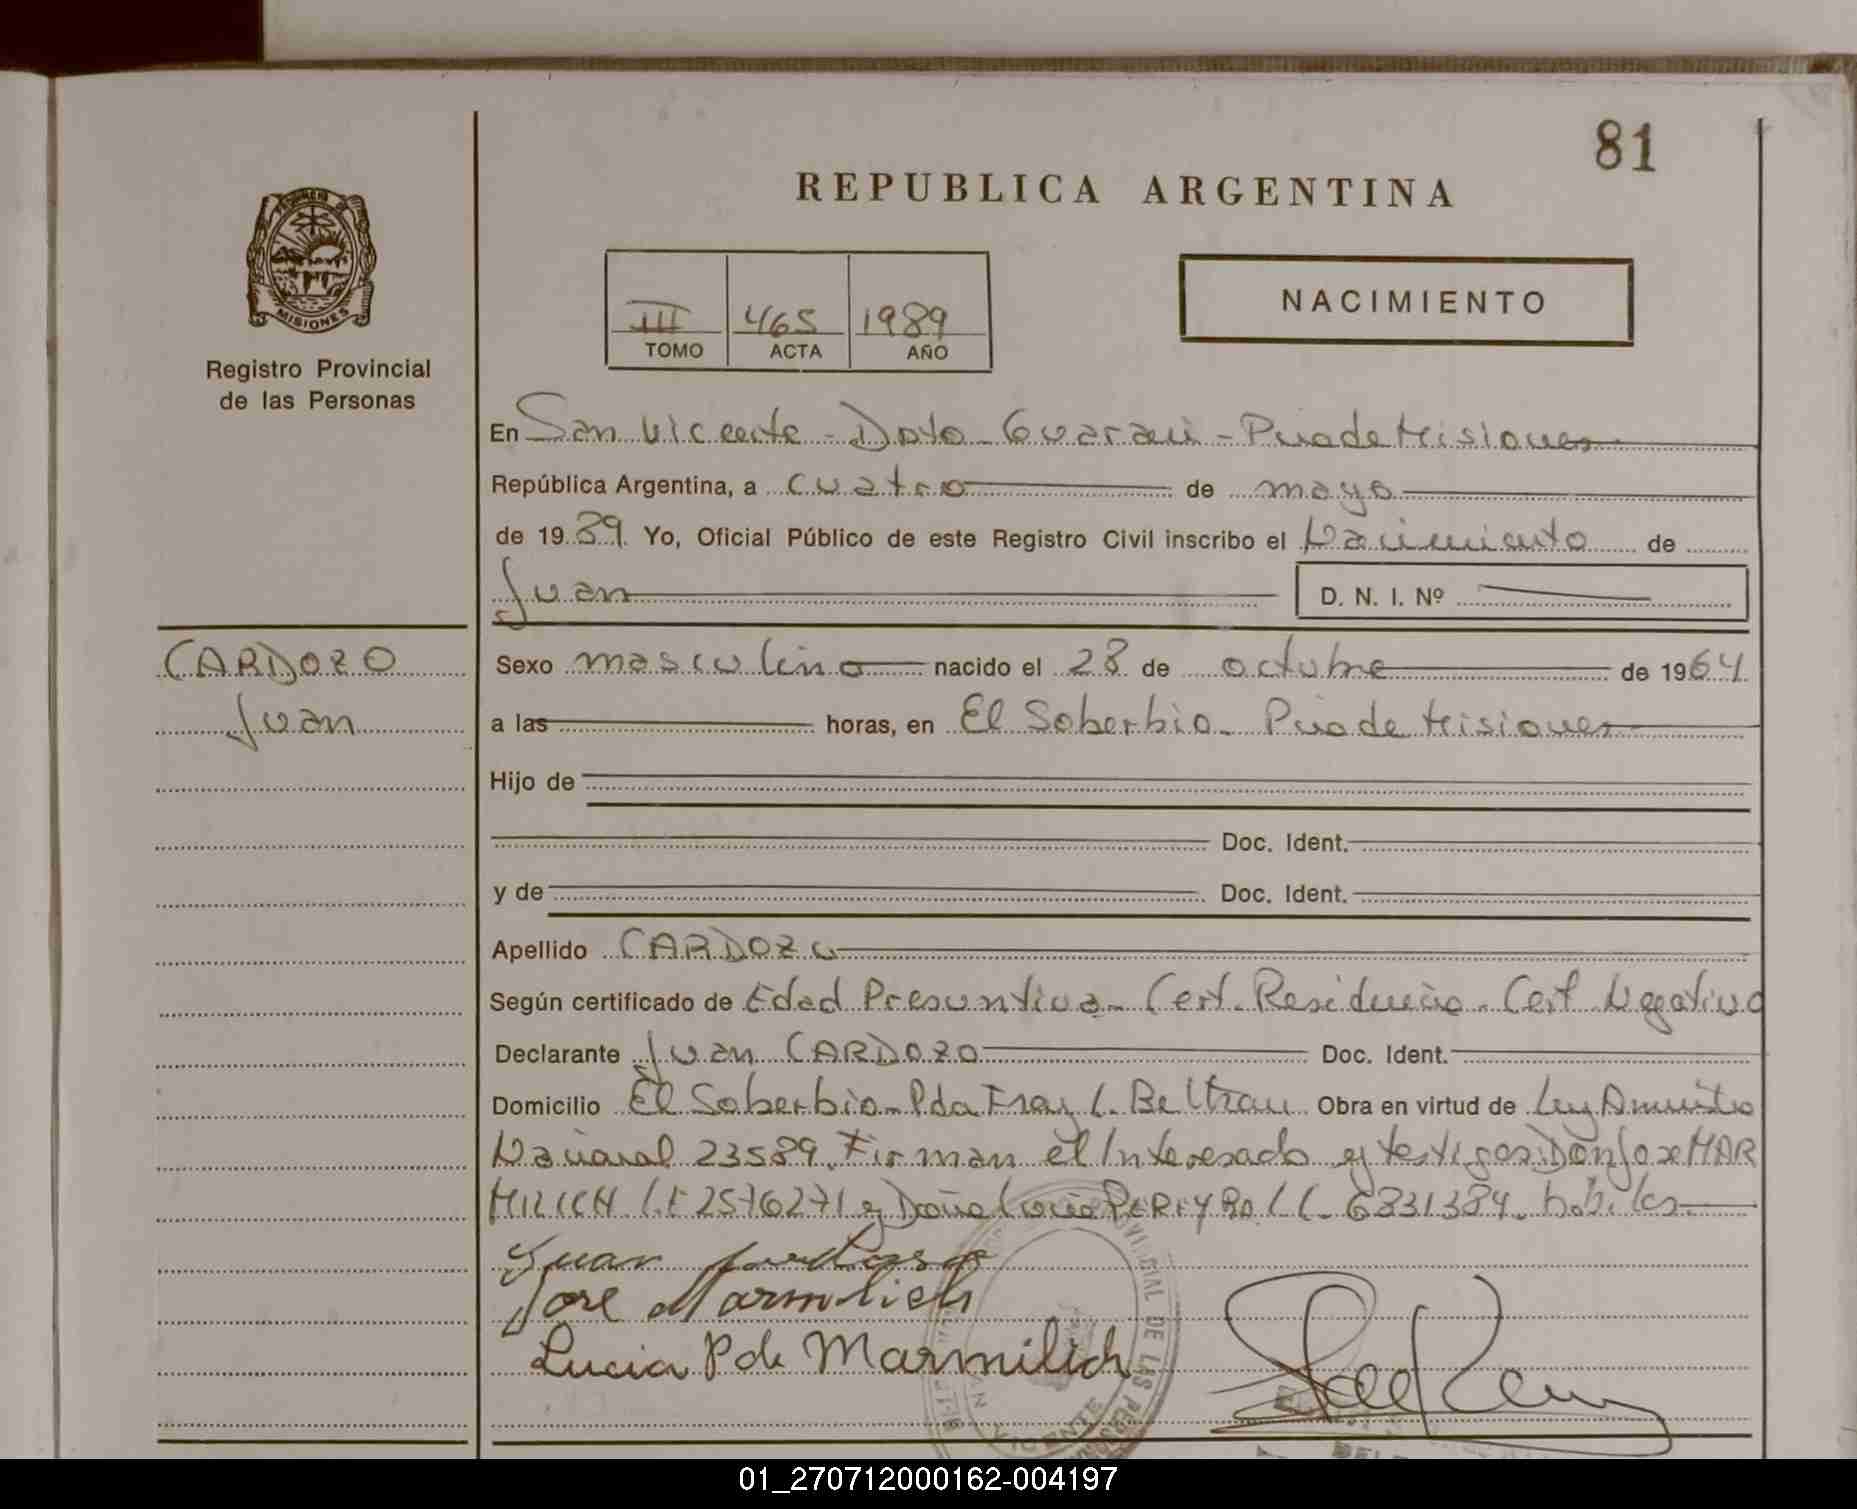 81
REPUBLICA ARGENTINA
MISIONES
Registro Provincial
de las Personas
III 465 1989
TOMO ACTA AÑO
NACIMIENTO
En San Vicente - Dpto - Guarani - Pcia de Misiones
República Argentina, a cuatro de mayo
de 1989 Yo, Oficial Público de este Registro Civil inscribo el Nacimiento de
Juan D. N. I. Nº
CARDOZO
Juan
Sexo masculino nacido el 28 de octubre de 1964
a las horas, en El Soberbio - Pcia de Misiones
Hijo de
Doc. Ident.
y de Doc. Ident.
Apellido CARDOZO
Según certificado de Edad Presuntiva - Cert. Residencia - Cert Negativo
Declarante Juan CARDOZO Doc. Ident.
Domicilio El Soberbio - Pda Fray L. Beltran Obra en virtud de Ley Amnistia
Nacional 23589. Firman el Interesado y testigos: Don Jose MAR
MILICH L.E 2576271 y Doña Lucia PEREYRA L C. 6831384. habiles.
Juan
Jose Marmilich
Lucia P de Marmilich
VICENTE
01_270712000162-004197